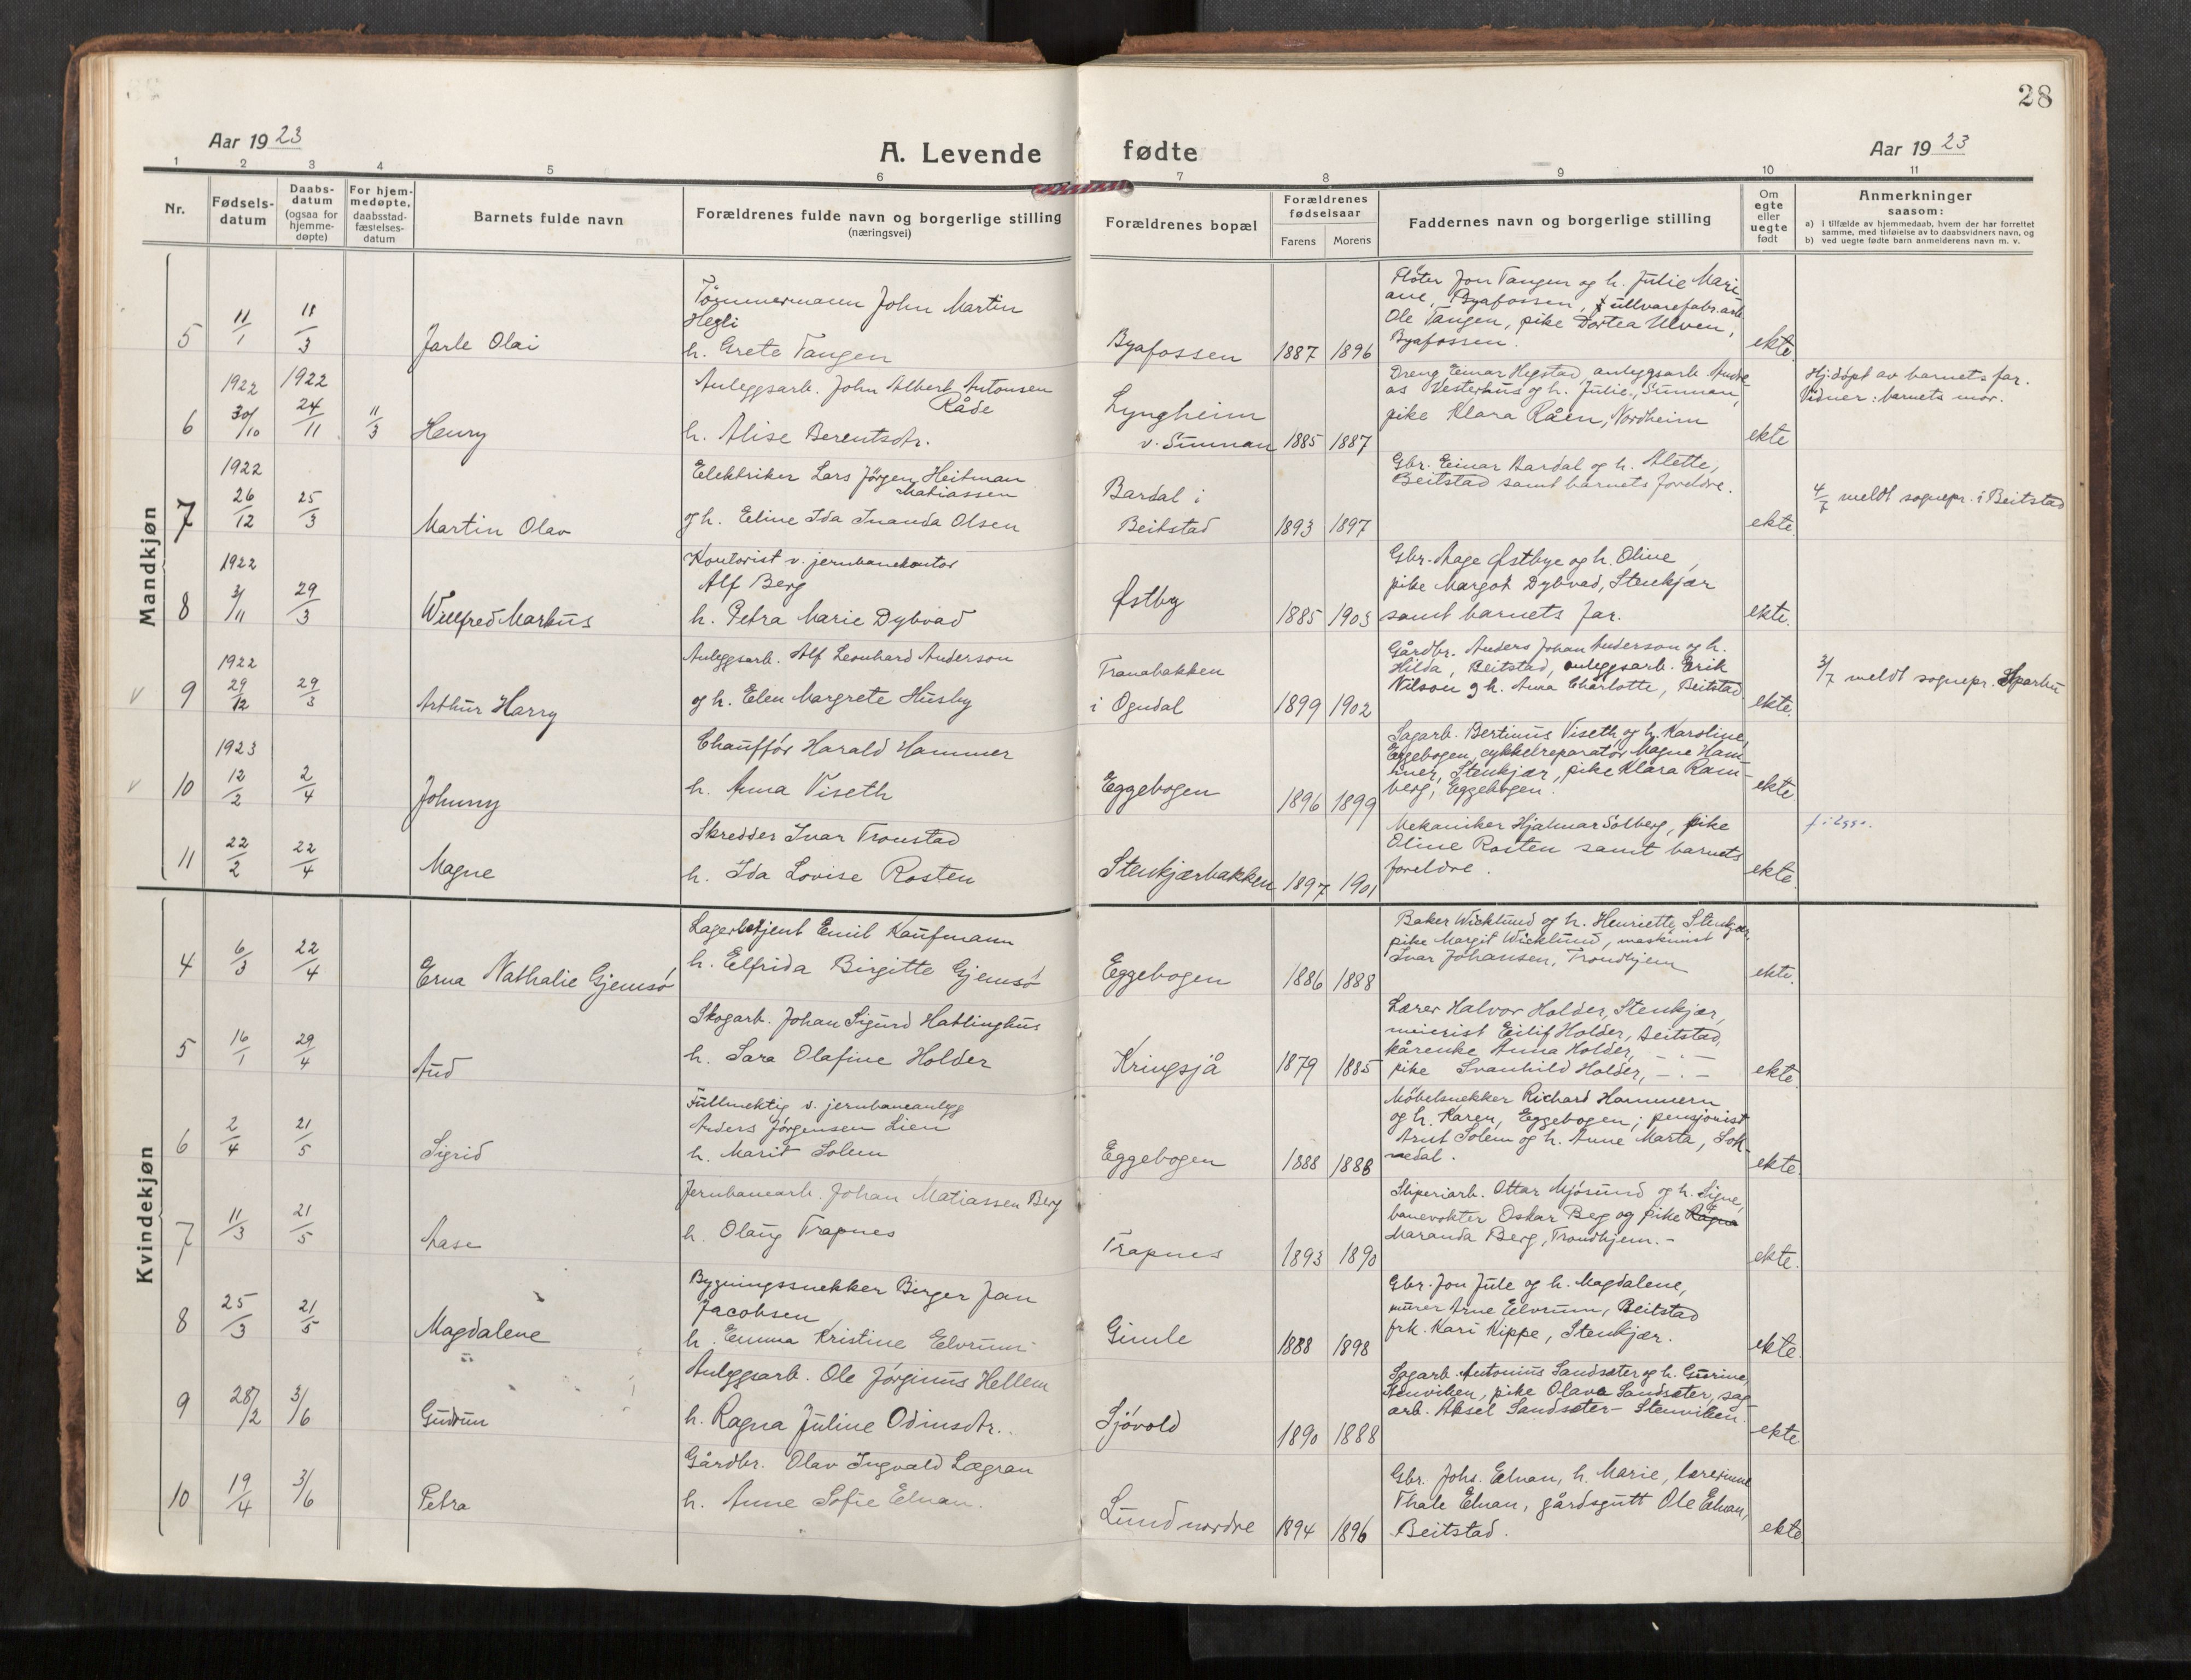 28
Aar 1923
A. Levende fødte
Aar 1923
1 2 3 4 5 6 7 8 9 10 11
Nr.
Fødsels-
datum
Daabs-
datum
(ogsaa for
hjemme-
døpte)
For hjem-
medøpte,
daabsstad-
fæstelses-
datum
Barnets fulde navn
Forældrenes fulde navn og borgerlige stilling
(næringsvei)
Forældrenes bopæl
Forældrenes
fødselsaar
Farens Morens
Faddernes navn og borgerlige stilling
Om
egte
eller
uegte
født
Anmerkninger
saasom:
a) i tilfælde av hjemmedaab, hvem der har forrettet
samme, med tilføielse av to daabsvidners navn, og
b) ved uegte fødte barn anmelderens navn m. v.
Mandkjøn
5 11/1 11/3 Jarle Olai
Tømmermann John Martin
Hegli
h. Grete Tangen
Byafossen 1887 1896
Fløter Jon Tangen og h. Julie Mari-
ane, Byafossen, ullvarefabr.arb.
Ole Tangen, pike Dortea Ulven,
Byafossen.
ekte.
1922 1922
6 30/10 24/11 11/3 Henry
Anleggsarb. John Albert Antonsen
Råde
h. Alise Berentsdtr.
Lyngheim
v. Sunnan 1885 1887
Dreng Einar Hegstad, anleggsarb. Andre-
as Vesterhus og h. Julie, Sunnan,
pike Klara Råen, Nordheim
ekte
Hj.døpt av barnets far.
Vidner: barnets mor.
1922
7 26/12 25/3 Martin Olav
Elektriker Lars Jørgen Heitman
Matiassen
og h. Eline Ida Inanda Olsen
Bardal i
Beitstad 1893 1897
Gbr. Einar Bardal og h. Alette,
Beitstad samt barnets foreldre.
ekte
4/7 meldt sognepr. i Beitstad
1922
8 3/11 29/3 Willfred Markus
Kontorist v. jernbanekontor
Alf Berg
h. Petra Marie Dybvad
Østby 1885 1903
Gbr. Aage Østbye og h. Oline,
pike Margot Dybvad, Stenkjær
samt barnets far.
ekte.
1922
9 29/12 29/3 Arthur Harry
Anleggsarb. Alf Leonhard Anderson
og h. Elen Margrete Husby
Tranabakken
i Ogndal 1899 1902
Gårdbr. Anders Johan Anderson og h.
Hilda, Beitstad, anleggsarb. Erik
Nilson og h. Anna Charlotte, Beitstad
ekte.
3/7 meldt sognepr. Sparbu
1923
10 12/2 2/4 Johnny
Chauffør Harald Hammer
h. Anna Viseth
Eggebogen 1896 1899
Sagarb. Bertinus Viseth og h. Karoline,
Eggebogen, cykkelreparatør Magne Ham-
mer, Stenkjær, pike Klara Ram-
berg, Eggebogen.
ekte.
11 22/2 22/4 Magne
Skredder Ivar Tronstad
h. Ida Lovise Rosten
Stenkjærbakken 1897 1901
Mekaniker Hjalmar Solberg, pike
Oline Rosten samt barnets
foreldre.
ekte.
Kvindekjøn
4 6/3 22/4 Erna Nathalie Gjemsø
Lagerbetjent Emil Kaufmann
h. Elfrida Birgitte Gjemsø
Eggebogen 1886 1888
Baker Wicklund og h. Henriette, Stenkjær,
pike Margit Wicklund, maskinist
Ivar Johansen, Trondhjem
ekte.
5 16/1 29/4 Aud
Skogarb. Johan Sigurd Hatlinghus
h. Sara Olafine Holder
Kringsjå 1879 1885
Lærer Halvor Holder, Stenkjær,
meierist Eilif Holder, Beitstad,
kårenke Anna Holder, — " —
pike Svanhild Holder, — " —
ekte.
6 2/4 21/5 Sigrid
Fullmektig v. jernbaneanlegg
Anders Jørgensen Lien
h. Marit Solem
Eggebogen 1888 1888
Møbelsnekker Richard Hammern
og h. Karen, Eggebogen; pensjonist
Arnt Solem og h. Anne Marta, Sok-
nedal.
ekte.
7 11/3 21/5 Aase
Jernbanearb. Johan Matiassen Berg
h. Olaug Trapnes
Trapnes 1893 1890
Sliperiarb. Ottar Mjøsund og h. Signe,
banevokter Oskar Berg og pike Ragna
Maranda Berg, Trondhjem. -
ekte.
8 25/3 21/5 Magdalene
Bygningssnekker Birger Jan
Jacobsen
h. Emma Kristine Elvrum
Gimle 1888 1898
Gbr. Jon Jule og h. Magdalene,
murer Arne Elvrum, Beitstad
frk. Kari Kippe, Stenkjær.
ekte.
9 28/2 3/6 Gudrun
Anleggsarb. Ole Jørginus Hellem
h. Ragna Juline Odinsdtr.
Sjøvold 1890 1888
Sagarb. Antonius Sandsæter og h. Gurine,
Stenviken, pike Olava Sandsæter, sag-
arb. Aksel Sandsæter - Stenviken.
ekte
10 19/4 3/6 Petra
Gårdbr. Olav Ingvald Lægran
h. Anne Sofie Elnan.
Lund nordre 1894 1896
Gbr. Johs. Elnan, h. Marie, lærerinne
Thale Elnan, gårdsgutt Ole Elnan,
Beitstad.
ekte